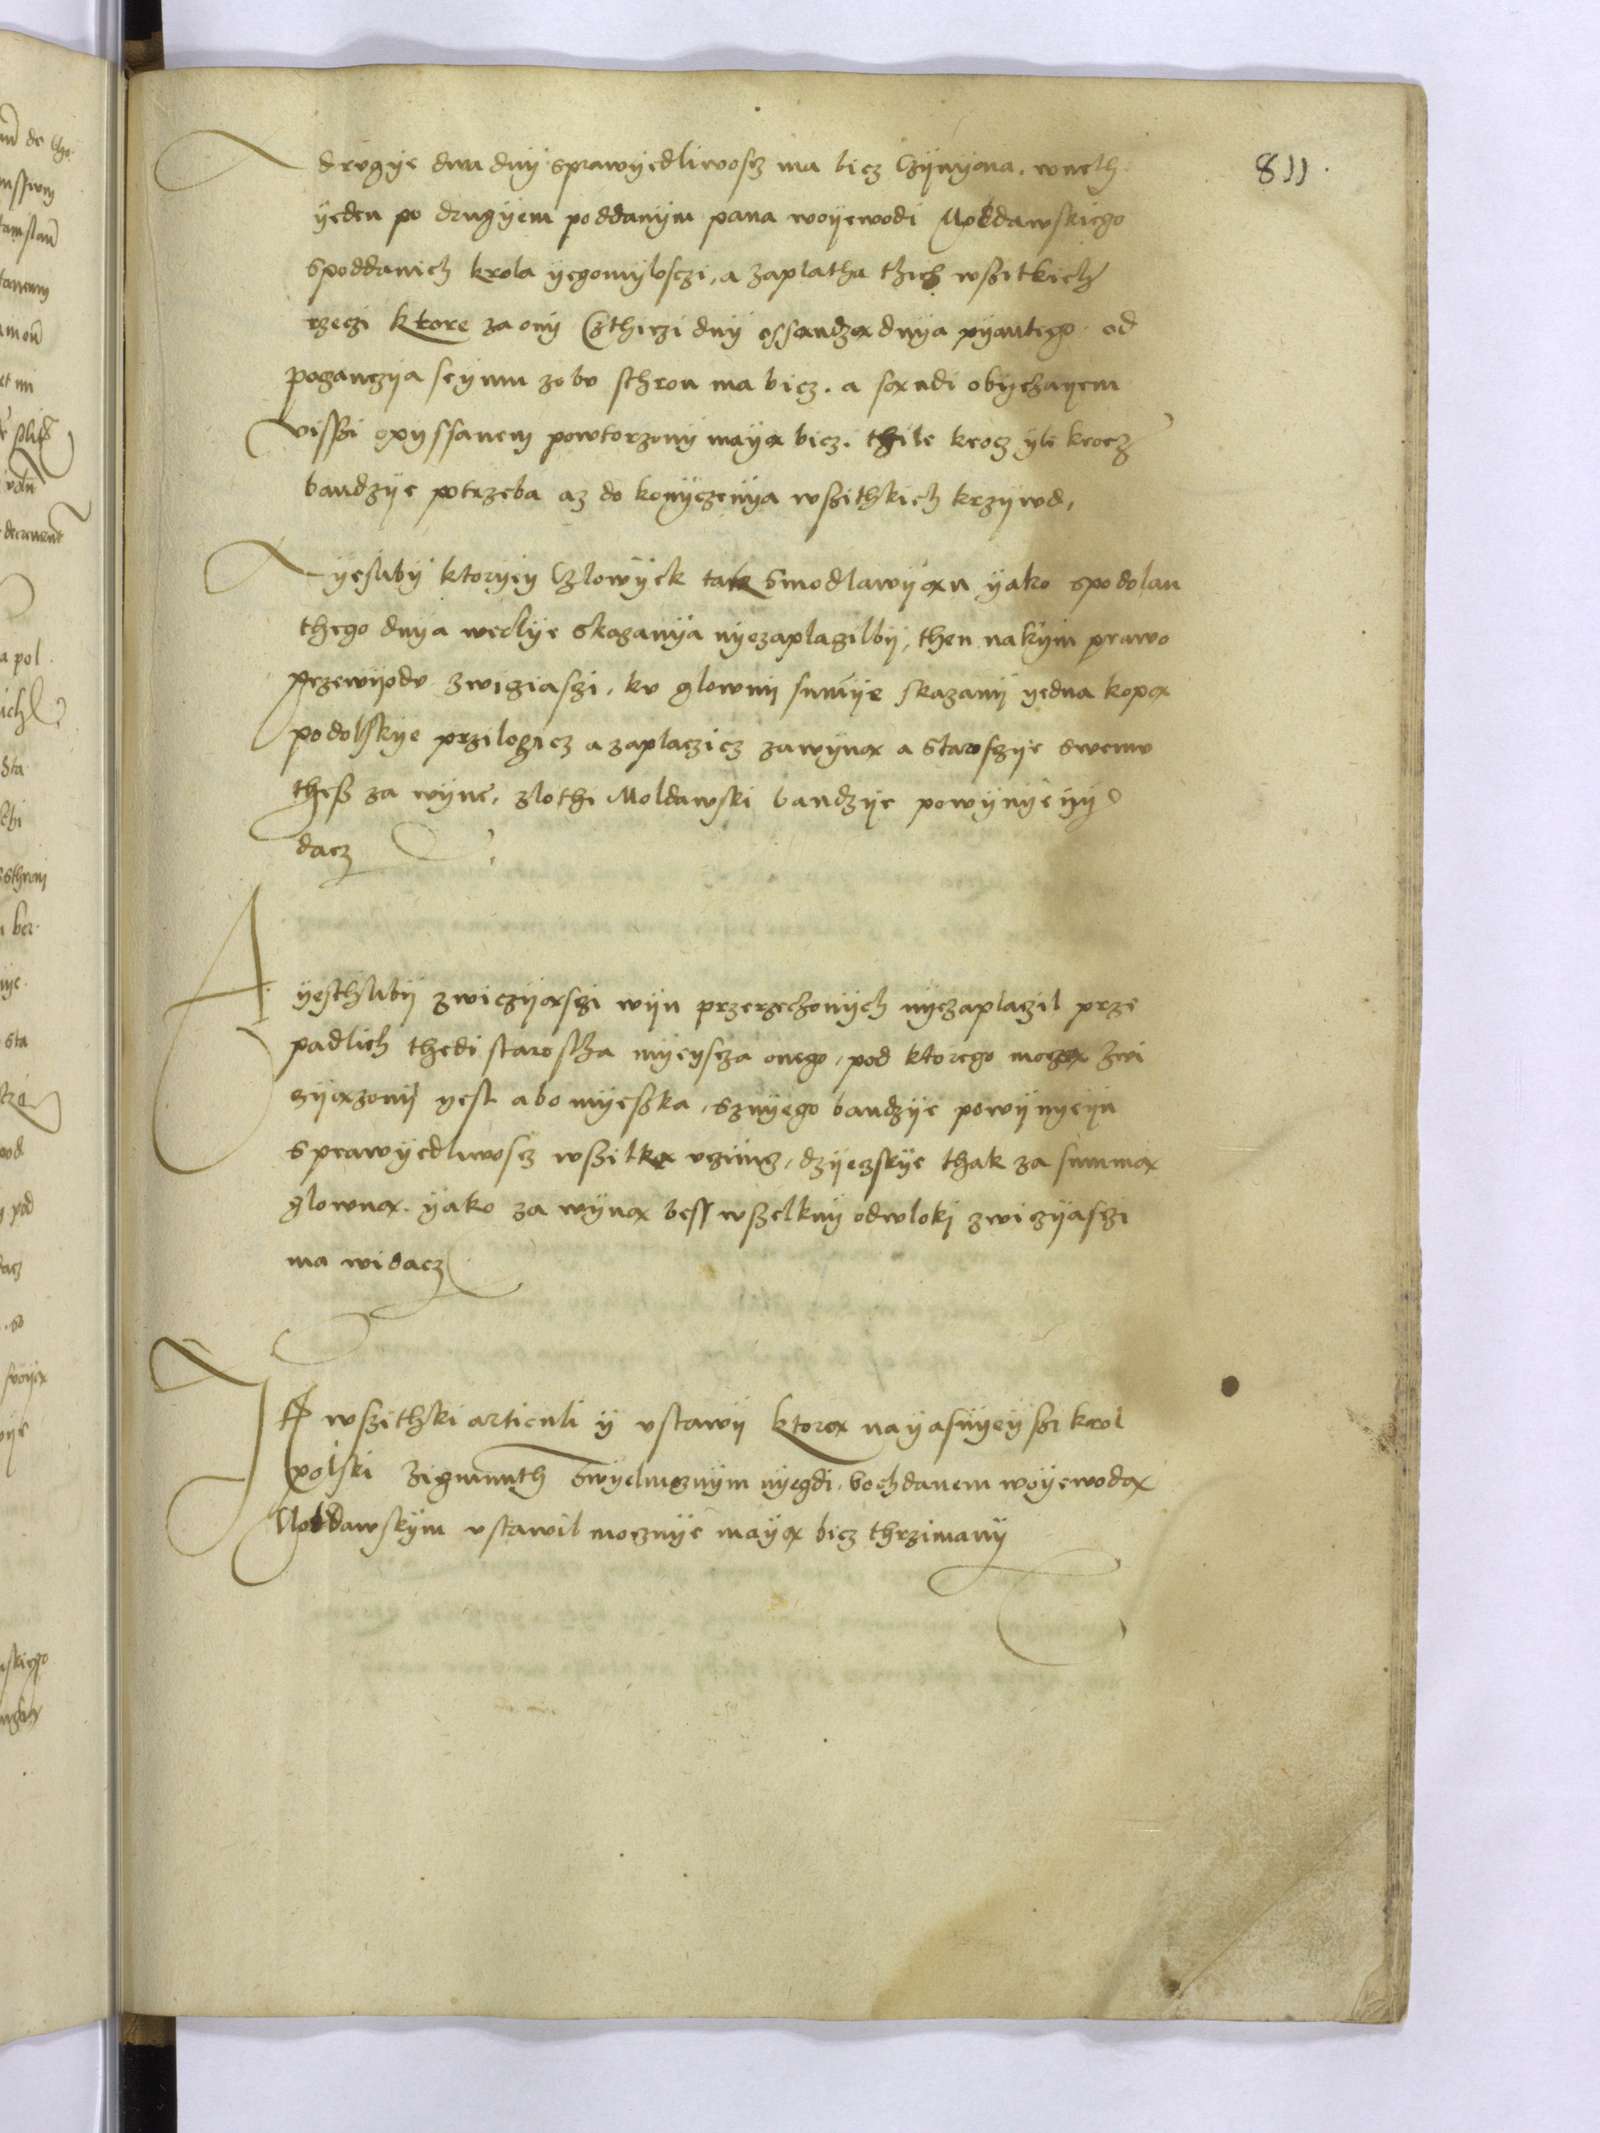 811.
drvgye dwu dnÿ sprawÿedliwosz ma bicz Czÿnÿona, wneth
ÿeden po drugÿem poddanÿm pana woÿewodi Moldawskiego
spoddanich krola ÿegomÿlosczi, a zaplatha thich wßitkich
rzeczi ktore za onÿ Czthirzi dnÿ ossandzα dnÿa pÿantego od
poczanczÿa seÿmu zobv sthron ma bicz. a sαndi obÿchaÿem
vissßi opÿssanem powtorzonÿ maÿα bicz. thile krocz ÿle krocz
bandzÿe potrzeba az do konÿczenÿa wßithkich krzÿwd,
ÿesliby ktorÿeÿ Czlowÿek tak Smodlawÿαn ÿako spodolan
thego dnÿa wedlÿe skazanÿa nÿezaplazilbÿ, then nakÿm prawo
przewÿodv zwiziaßi, kv glownÿ sumÿe skazanÿ ÿedna kopα
podolskÿe przilozicz a zaplaczicz zawÿnα a Staroszÿe swemv
theß za wÿne, zlothi Moldawski bandzÿe powÿnÿeÿ
dacz
A ÿesthlibÿ zwiczÿαßi wÿn przerzechonÿch nÿezaplazil prze
padlich thedi starostha mÿeÿscza onego, pod ktorego moczα zwi
zÿαzonÿ ÿest abo mÿeßka, sznÿego bandzÿe powÿnÿeÿn
sprawÿedliwosz wßitkα vczÿnÿ, dzÿeczskÿe thak za summα
glownα. ÿako za wÿnα bess wßelknÿ odwlokÿ zwiczÿaßi
ma widacz
It wßithki articuli ÿ vstawÿ ktorα naÿasnÿeÿßi krol
polski Zigmunth Swÿelmoznÿm nÿegdi, bochdanem woÿewodα
Moldawskÿm vstawil mocznÿe maÿα bicz thrzimanÿ